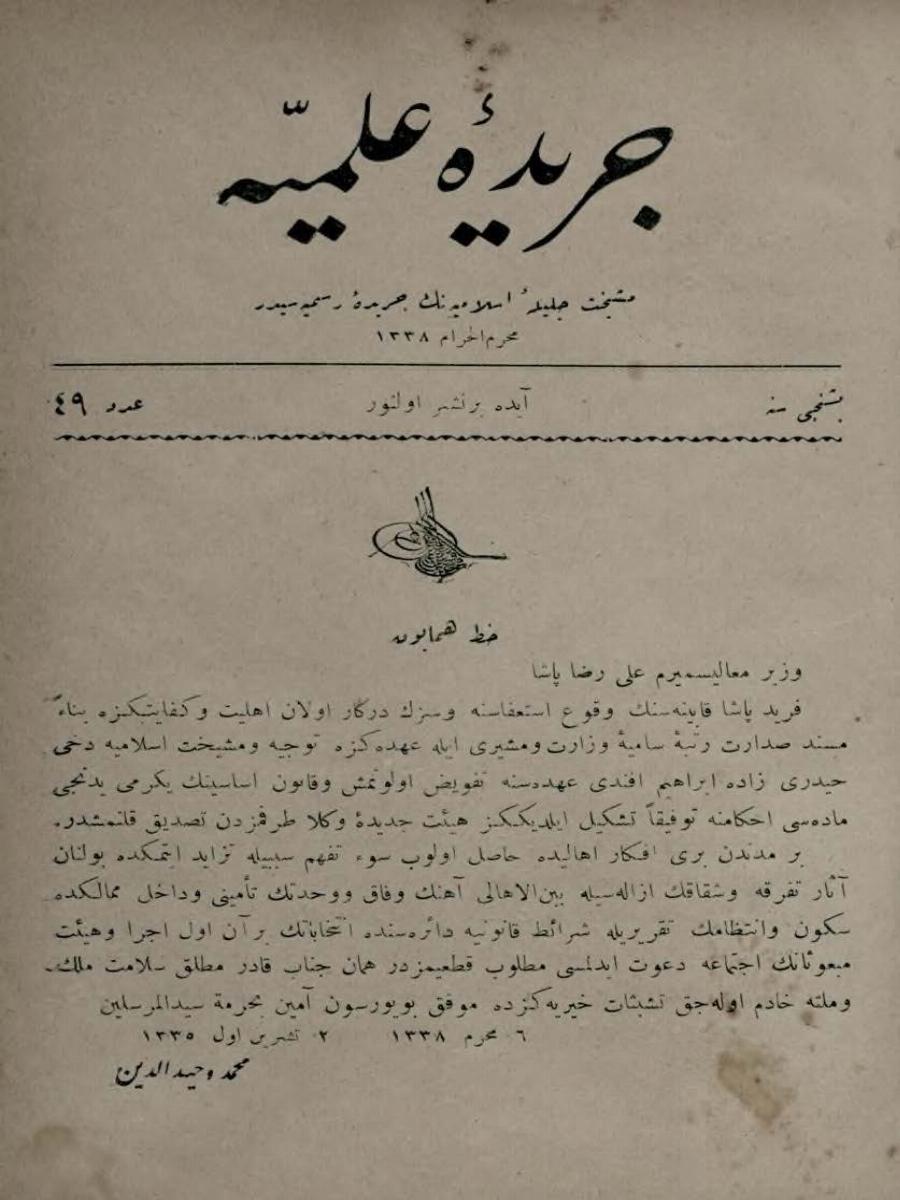 جريدهٔ علميّه
مشيخت جليلهٔ اسلاميه‌نك جريدهٔ رسميه‌سيدر
محرم‌الحرام ١٣٣٨
بشنجى سنه
آيده بر نشر اولنور
عدد ٤٩
خط همايون
وزير معاليسميرم على رضا پاشا
فريد پاشا قابينه‌سنك وقوع استعفاسنه وسزك دركار اولان اهليت وكفايتكزه بناءً
مسند صدارت رتبهٔ ساميهٔ وزارت ومشيرى ايله عهده‌كزه توجيه ومشيخت اسلاميه دخى
حيدرى زاده ابراهيم افندى عهده‌سنه تفويض اولونمش وقانون اساسينك يكرمى يدنجى
ماده‌سى احكامنه توفيقاً تشكيل ايلديككز هيئت جديدهٔ وكلا طرفمزدن تصديق قلنمشدر.
بر مدتدن برى افكار اهاليده حاصل اولوب سوء تفهم سببيله تزايد ايتمكده بولنان
آثار تفرقه وشقاقك ازاله‌سيله بين‌الاهالى آهنك وفاق ووحدتك تأمينى وداخل ممالكده
سكون وانتظامك تقريريله شرائط قانونيه دائره‌سنده انتخاباتك بر آن اول اجرا وهيئت
مبعوثانك اجتماعه دعوت ايدلمسى مطلوب قطعيمزدر همان جناب قادر مطلق سلامت ملك
وملته خادم اوله‌جق تشبثات خيريه‌كزده موفق بويورسون آمين بحرمة سيدالمرسلين
٦ محرم ١٣٣٨ ٢ تشرين اول ١٣٣٥
محمد وحيدالدين